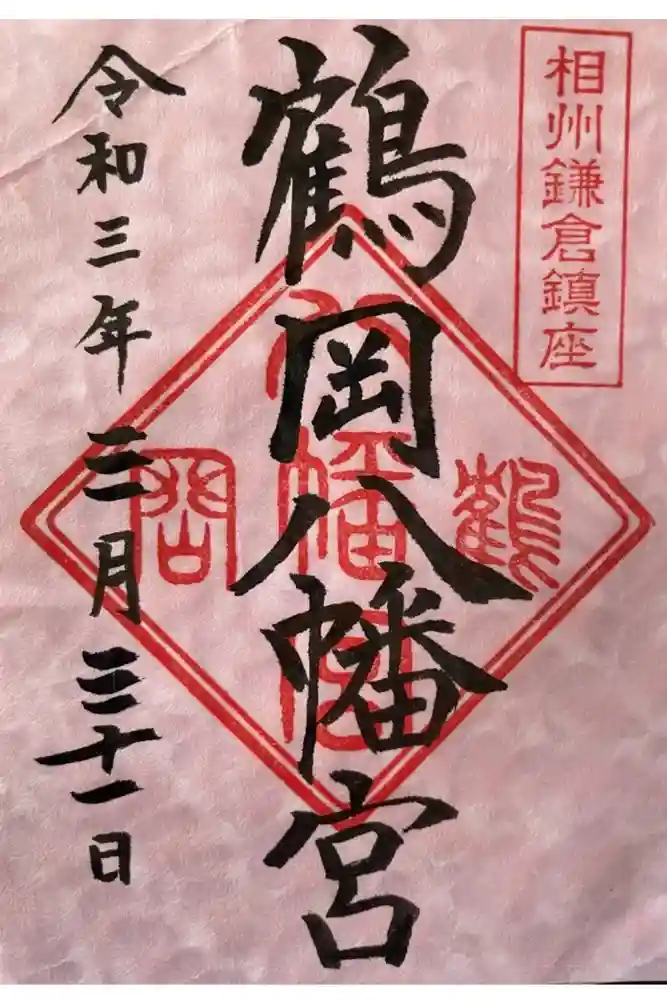 相州鎌倉鎮座
鶴岡八幡宮
鶴岡八幡宮
令和三年三月三十一日